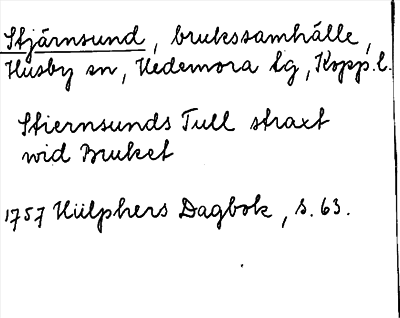 Stjärnsund, brukssamhälle,
Husby sn, Hedemora tg, Kopp.l.
Stiernsunds Tull straxt
wid Bruket
1757 Hülphers Dagbok, s. 63.